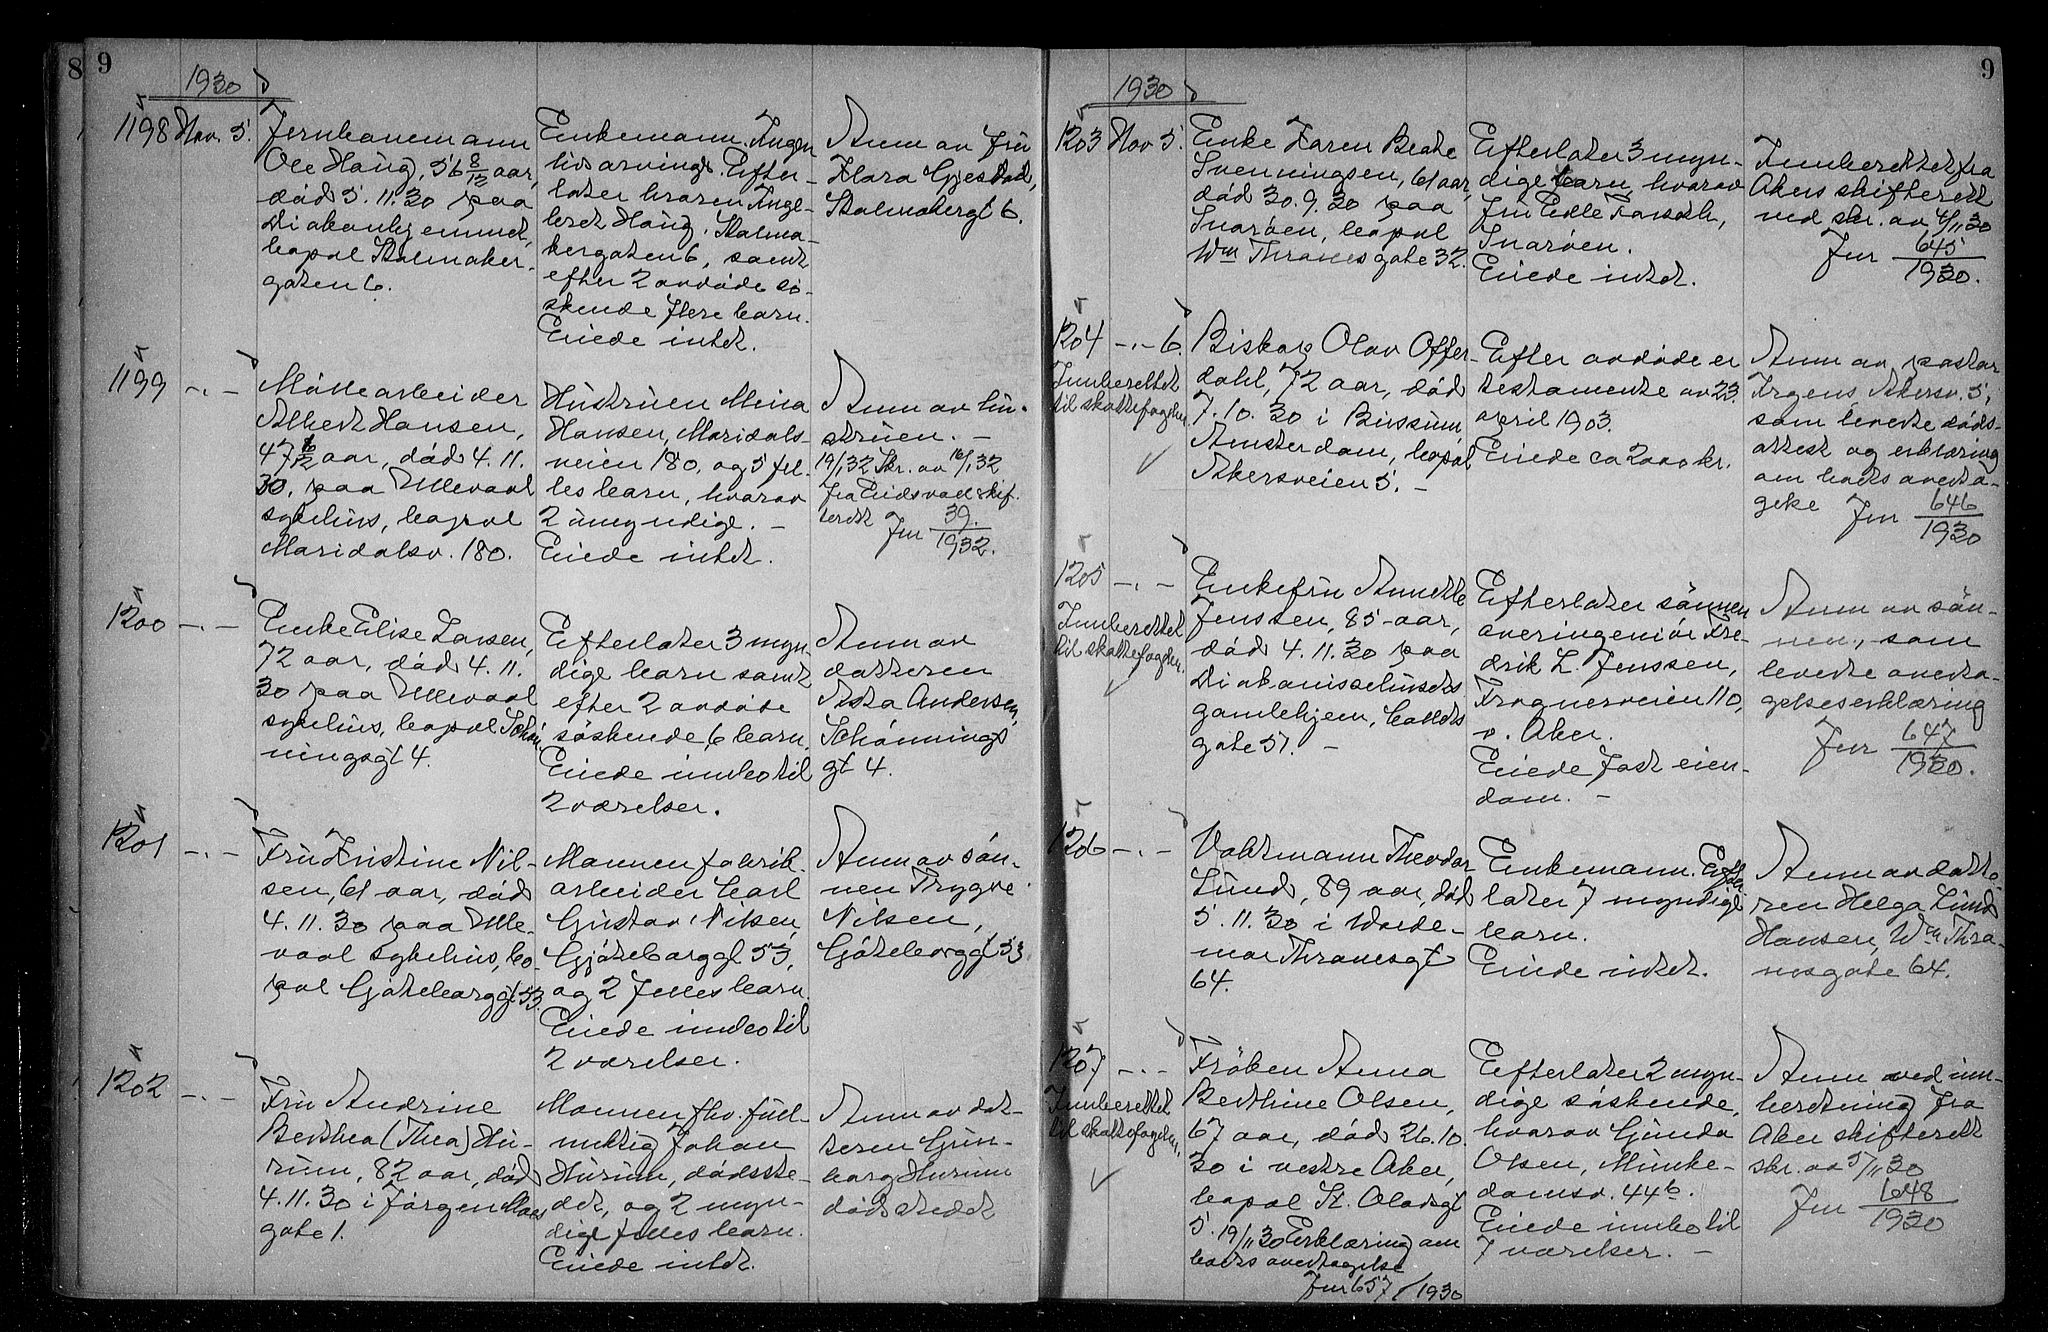 8
9
1930
1198 Nov. 5.
Jernbanemann
Ole Haug, 56 8/12 aar,
død 5.11.30 paa
Diakonhjemmet,
bopæl Stolmaker-
gaten 6.
Enkemann. Ingen
livsarving. Efter-
later broren Inge-
bret Haug, Stolma-
kergaten 6, samt
efter 2 avdøde sø-
skende flere barn.
Eiede intet.
Anm av fru
Klara Gjesdal,
Stolmakergt 6.
1199 -.-
Møllearbeider
Albert Hansen,
47 6/12 aar, død 4.11.
30. paa Ullevaal
sykehus, bopæl
Maridalsv. 180.
Hustruen Mina
Hansen, Maridals-
veien 180, og 5 fel-
les barn, hvorav
2 umyndige. -
Eiede intet.
Anm av hu-
struen. -
19/1 32 Skr. av 16/1 32
fra Eidsvoll skif-
terett Jnr 39/1932.
1200 -.-
Enke Elise Larsen,
72 aar, død 4.11.
30 paa Ullevaal
sykehus, bopæl Schøn-
ningsgt 4.
Efterlater 3 myn-
dige barn samt
efter 2 avdøde
søskende 6 barn.
Eiede innbo til
2 værelser.
Anm av
datteren
Asta Andersen,
Schønnings
gt 4.
1201 -.-
Fru Kristine Nil-
sen, 61 aar, død
4.11.30 paa Ulle-
vaal sykehus, bo-
pæl Gøteborggt 53.
Mannen fabrik-
arbeider Carl
Gustav Nilsen,
Gjøteborggt 53,
og 2 felles barn.
Eiede innbo til
2 værelser.
Anm av søn-
nen Trygve
Nilsen,
Gøteborggt 53
1202 -.-
Fru Andrine
Berthea (Thea) Hu-
rum, 82 aar, død
4.11.30 i Jørgen Moes
gate 1.
Mannen fhv. full-
mektig Johan
Hurum, dødsste-
det, og 2 myn-
dige felles barn.
Eiede intet.
Anm av dat-
teren Gun-
borg Hurum
dødsstedet
9
1930
1203 Nov 5.
Enke Karen Beate
Svenningsen, 61 aar,
død 30.9.30 paa
Snarøen, bopæl
Wm Thranes gate 32.
Efterlater 3 myn-
dige barn, hvorav
fru Edle
Snarøen.
Eiede intet.
Innberettet fra
Akers skifterett
ved skr. av 4/11 30
Jnr 645/1930.
1204 -.- 6.
Innberettet
til skattefogden.
Biskop Olav Offer-
dahl, 72 aar, død
7.10.30 i Bussum,
Amsterdam, bopæl
Akersveien 5. -
Efter avdøde er
testamente av 23.
april 1903.
Eiede ca 2000 kr.
Anm av pastor
Irgens Akersv. 5,
som leverte døds-
attest og erklæring
om boets overta-
gelse Jnr 646/1930
1205 -.-
Innberettet
til skattefogden.
Enkefru Annette
Jenssen, 85 aar,
død 4.11.30 paa
Diakonissehusets
gamlehjem, Colletts
gate 51. -
Efterlater sønnen
overingeniør Fre-
drik L. Jenssen,
Frognerveien 110,
v. Aker.
Eiede fast eien-
dom. -
Anm av søn-
nen, som
leverte overta-
gelseserklæring
Jnr 647/1930.
1206 -.-
Vaktmann Theodor
Lund, 89 aar, død
5.11.30 i Wolde-
mar Thranesgt
64.
Enkemann. Efter-
later 7 myndige
barn.
Eiede intet.
Anm av datte-
ren Helga Lund
Hansen, Wm Thra-
nesgate 64.
1207 -.-
Innberettet
til skattefogden.
Frøken Anna
Berthine Olsen,
67 aar, død 26.10.
30 i vestre Aker,
bopæl St. Olavsgt
5. 19/11 30 Erklæring om
boets overtagelse
Jnr 657/1930
Efterlater 2 myn-
dige søskende,
hvorav Gunda
Olsen, Munke-
damsv. 44b.
Eiede innbo til
7 værelser. -
Anm ved inn-
beretning fra
Aker skifterett
skr. av 5/11 30
Jnr 648/1930